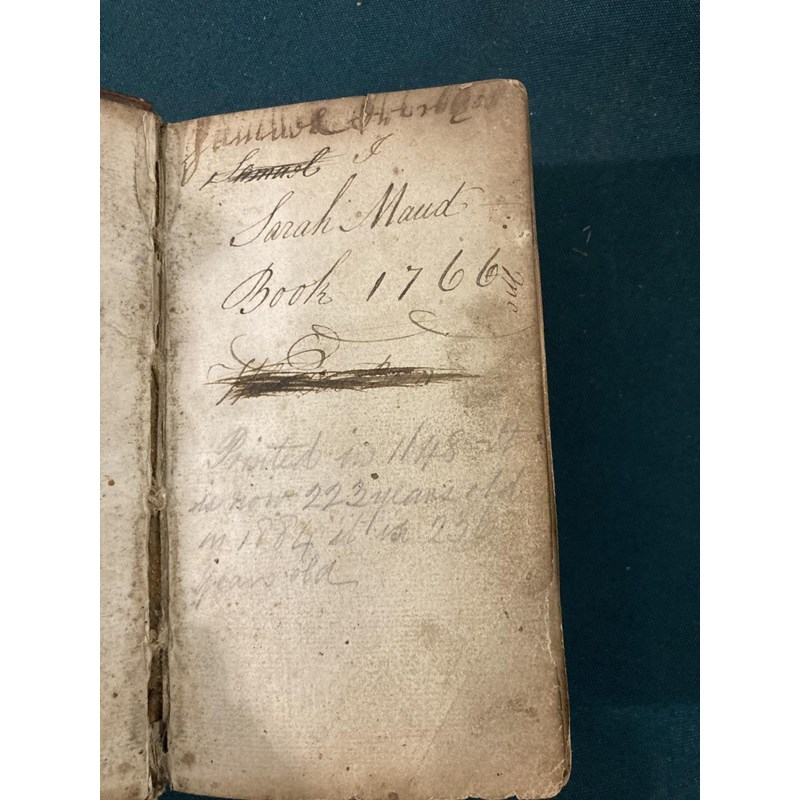 Samuel J
Sarah Maud
Book 1766
Printed in 1648 it
is now 223 years old
in 1884 it is 236
years old